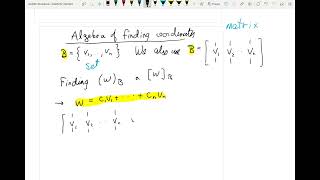 Algebra of finding coordinates
matrix
B = { v₁, ..., vₙ } We also use B = [ v₁ v₂ ... vₙ ]
set
Finding (w)_B or [w]_B
→ w = c₁v₁ + ... + cₙvₙ
[ v₁ v₂ ... vₙ